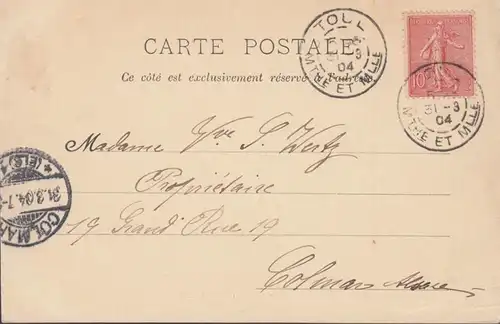 TOUL
31 -3
04
MTHE ET MLLE
CARTE POSTALE
Ce côté est exclusivement réservé à l'adresse
10
31 -3
04
MTHE ET MLLE
Madame Vve S. Wertz
Propriétaire
19 Grand Rue 19
Colmar Alsace
COLMAR
31.3.04.7-
(ELS)